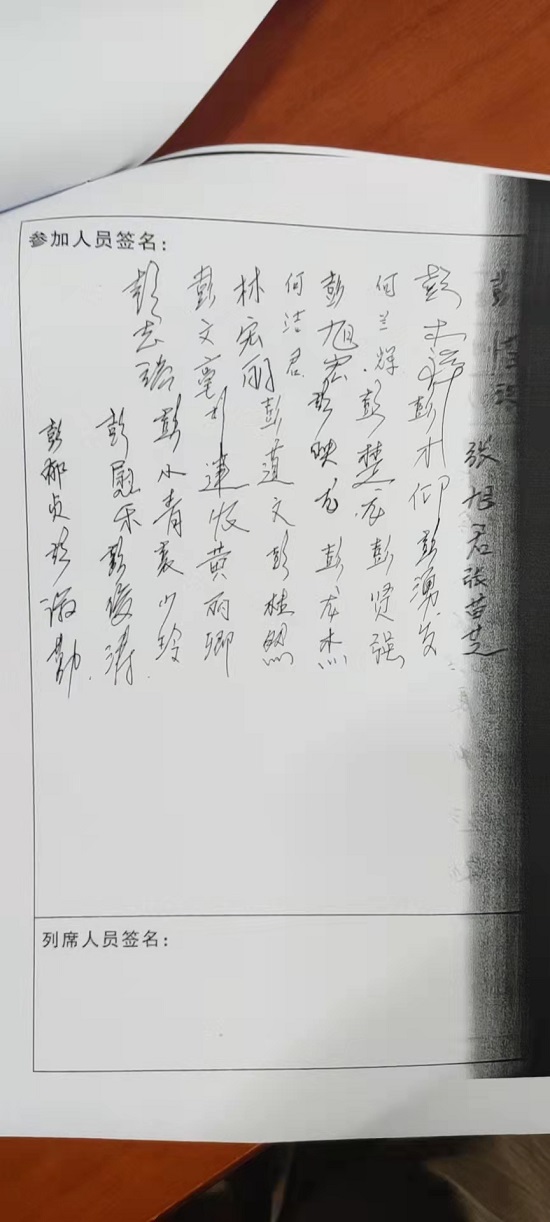 参加人员签名：
彭
张旭君 张苗芝
彭木 彭才仰 彭勇发
何兰辉 彭楚龙 彭贤强
彭旭宏 彭映龙 彭龙杰
何洁君
林宏丽 彭莲文 彭桂照
彭文亮 彭建版 黄丽卿
彭志 彭小青 袁少玲
彭慰乐 彭俊涛
彭郁贞 彭淑勤
列席人员签名：